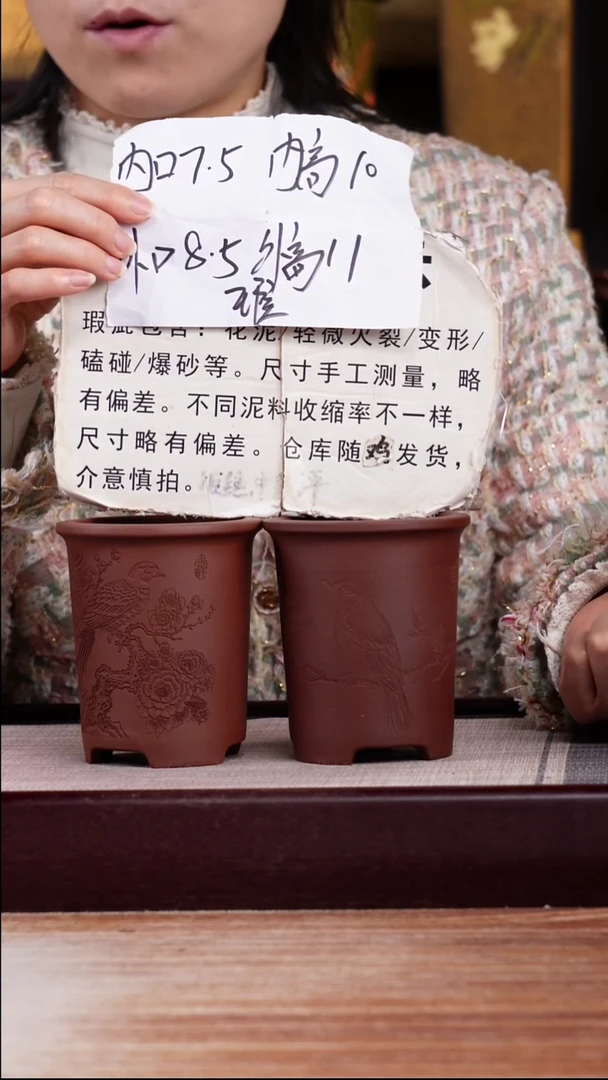 内口7.5 内高10
外口8.5 外高11
瑕
瑕疵包含：花泥/轻微火裂/变形/
磕碰/爆砂等。尺寸手工测量，略
有偏差。不同泥料收缩率不一样，
尺寸略有偏差。仓库随鸡发货，
介意慎拍。